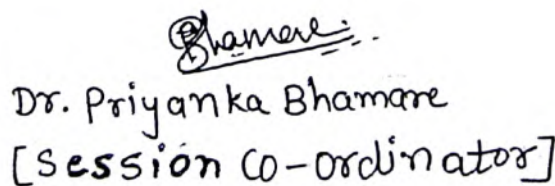 Bhamare.
Dr. Priyanka Bhamare
[Session Co-ordinator]